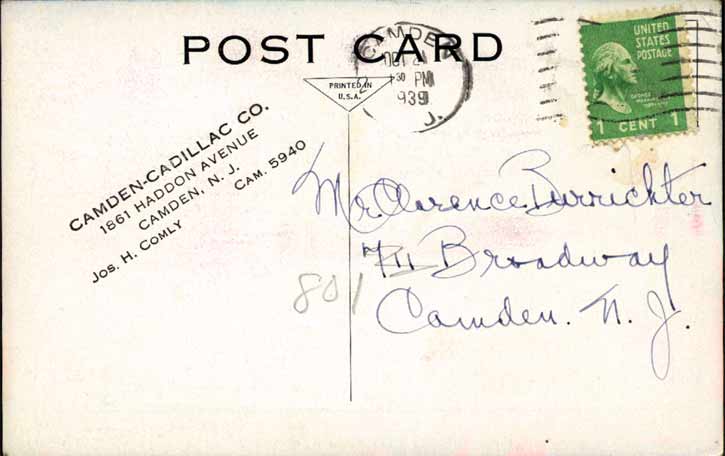 POST CARD
CAMDEN
OCT 24
30 PM
1939
J.
PRINTED IN
U.S.A.
UNITED
STATES
POSTAGE
1 CENT 1
CAMDEN-CADILLAC CO.
1861 HADDON AVENUE
CAMDEN, N. J.
JOS. H. COMLY CAM. 5940
Mr. Clarence Burrichter
711 Broadway
Camden. N. J.
801